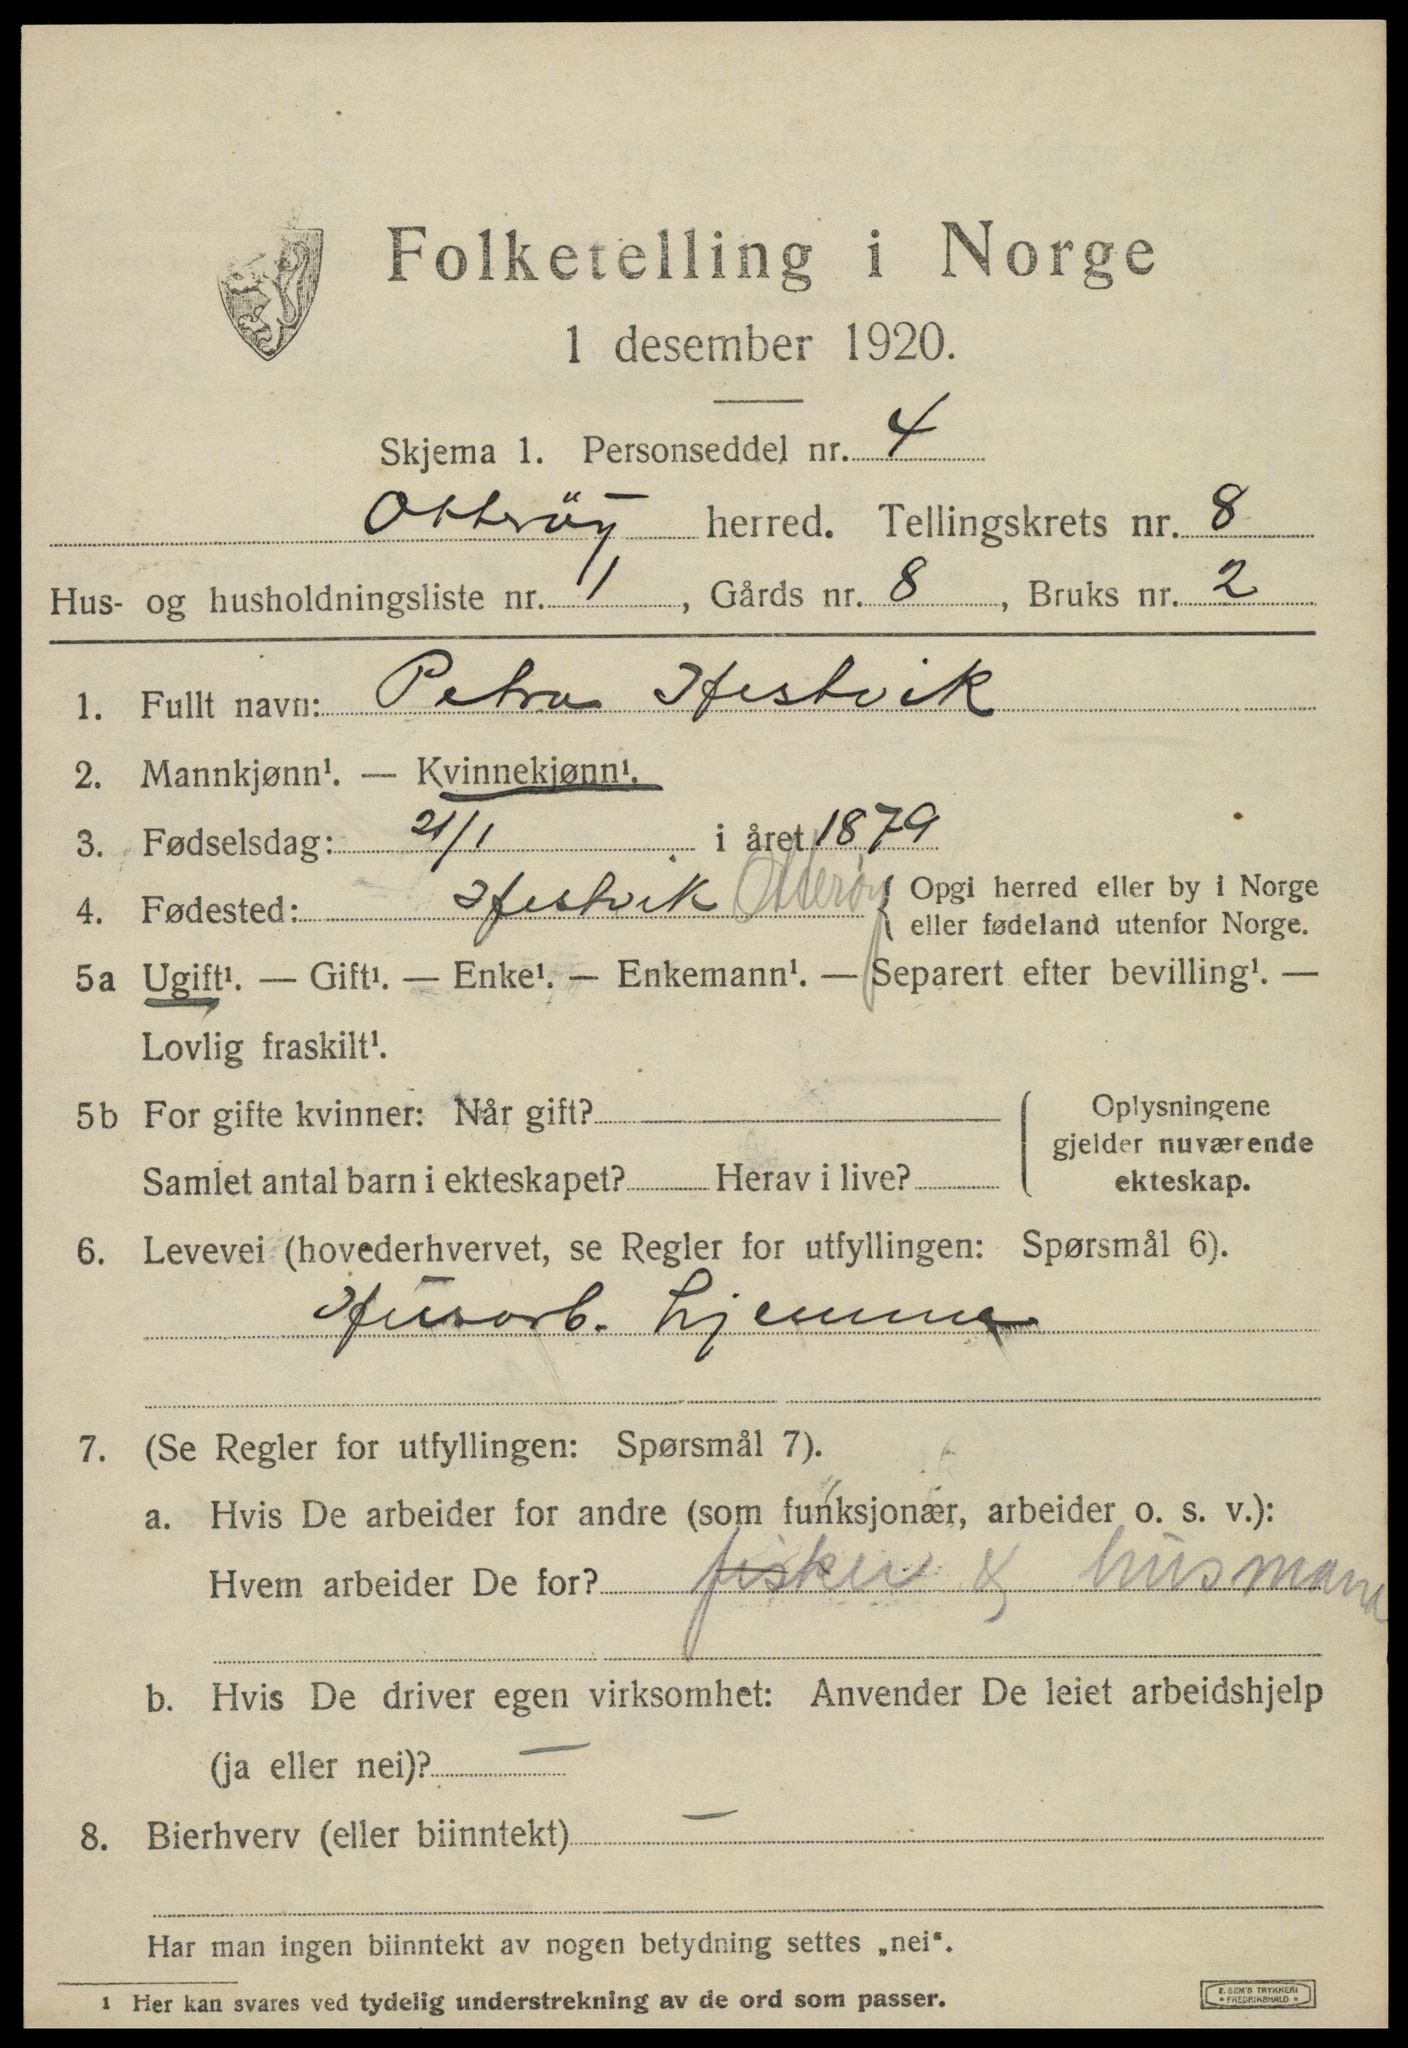 Folketelling i Norge
1 desember 1920.
Skjema 1. Personseddel nr. 4
Otterøy herred. Tellingskrets nr. 8
Hus- og husholdningsliste nr. 1, Gårds nr. 8, Bruks nr. 2
1. Fullt navn: Petra Hestvik
2. Mannkjønn¹. — Kvinnekjønn¹.
3. Fødselsdag: 21/1 i året 1879
4. Fødested: Hestvik Otterøy { Opgi herred eller by i Norge
eller fødeland utenfor Norge.
5a Ugift¹. — Gift¹. — Enke¹. — Enkemann¹. — Separert efter bevilling¹. —
Lovlig fraskilt¹.
5b For gifte kvinner: Når gift?
Samlet antal barn i ekteskapet? Herav i live?
Oplysningene
gjelder nuværende
ekteskap.
6. Levevei (hovederhvervet, se Regler for utfyllingen: Spørsmål 6).
Husarb. hjemme
7. (Se Regler for utfyllingen: Spørsmål 7).
a. Hvis De arbeider for andre (som funksjonær, arbeider o. s. v.):
Hvem arbeider De for? fisker & husmand
b. Hvis De driver egen virksomhet: Anvender De leiet arbeidshjelp
(ja eller nei)? —
8. Bierhverv (eller biinntekt) —
Har man ingen biinntekt av nogen betydning settes „nei“.
¹ Her kan svares ved tydelig understrekning av de ord som passer.
E. SEM'S TRYKKERI
• FREDRIKSHALD •